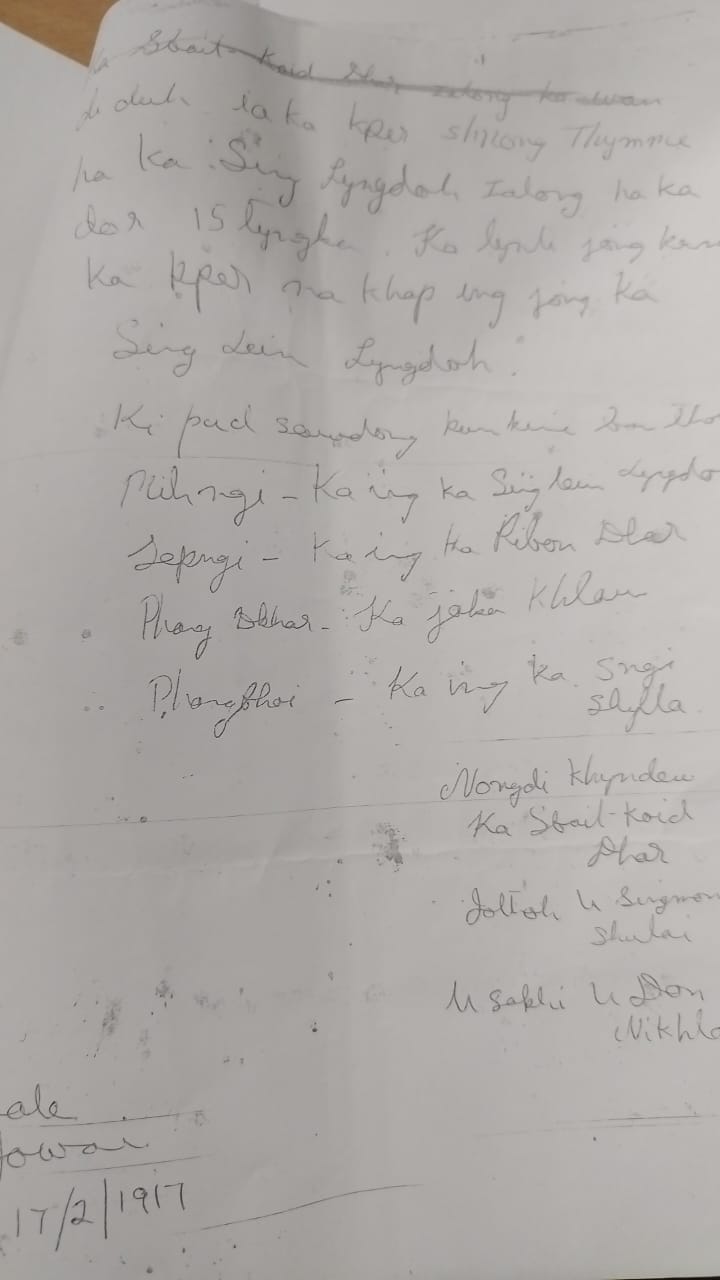 ka Sbait-Koid Dhar Ialong ka wan
di duh ia ka kper shnong Thymme
ha ka Sing Lyngdoh Ialong ha ka
dor 15 lyngka. Ka lynti jong kane
Ka kper na khap ing jong ka
Sing Lein Lyngdoh.
Ki pud sawdong kumkine
Mihngi - Ka ing ka Singlein Lyngdo
Sepngi - Ka ing ka Ribon Dhar
Phang Dkhar - Ka jaka Khlaw
Phangbhoi - Ka ing ka Sngi
Shylla.
Nongdi Khyndew
Ka Sbait-Koid
Dhar
Joltoh U Sugmon
Shulai
U Sakhi U Don
Nikhla
ale
Jowai
17/2/1917